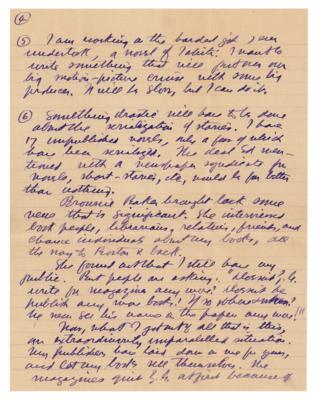 (2)
(5) I am working on the hardest job I ever
undertook, a novel of Tahiti. I want to
write something that will put over one
big motion-picture cruise with some big
producer. It will be slow, but I can do it.
(6) Something drastic will have to be done
about the serialization of stories. I have
17 unpublished novels, only a few of which
have been serialized. The deal I men-
tioned with a newspaper syndicate for
novels, short-stories, etc, would be far better
than nothing.
Brownie Baka brought back some
news that is significant. She interviewed
book people, librarians, relatives, friends, and
chance individuals about my books, all
the way to Boston & back.
She found out that I still have my
public. But people are asking. "Doesn't Z.G.
write for magazines any more? Doesn't he
publish any more books? If so where?
We never see his name in the papers any more!"
Now, what I get out of all this is this,
an extraordinary unparalleled situation.
My publishers have laid down on me for years,
and let my books sell themselves. The
magazines quit Z.G. at first because of